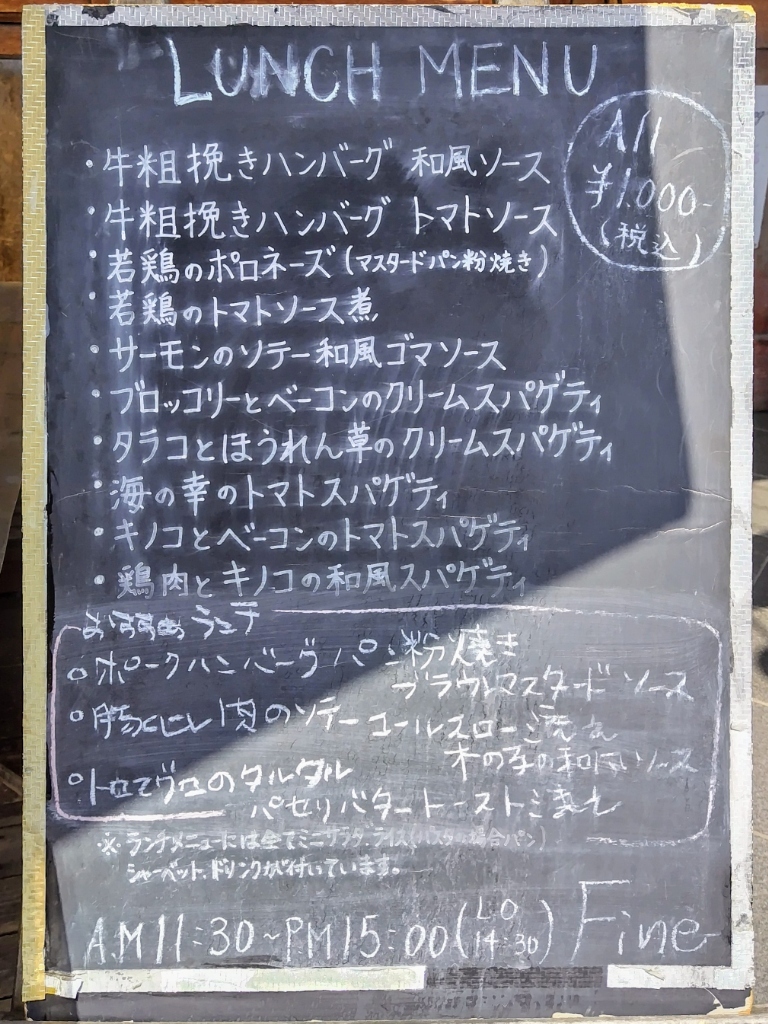 LUNCH MENU
All
¥1,000-
(税込)
・牛粗挽きハンバーグ 和風ソース
・牛粗挽きハンバーグ トマトソース
・若鶏のポロネーズ(マスタードパン粉焼き)
・若鶏のトマトソース煮
・サーモンのソテー和風ゴマソース
・ブロッコリーとベーコンのクリームスパゲティ
・タラコとほうれん草のクリームスパゲティ
・海の幸のトマトスパゲティ
・キノコとベーコンのトマトスパゲティ
・鶏肉とキノコの和風スパゲティ
おすすめランチ
○ポークハンバーグパン粉焼き
ブラウンマスタードソース
○豚にく肉のソテー コールスロー添え
木の子の和風ソース
○トロてびのタルタル
パセリバタートースト添え
※ランチメニューには全てミニサラダ、ライス(パスタの場合パン)
シャーベット、ドリンクが付いています。
A.M11:30~PM15:00(LO 14:30)
Fine